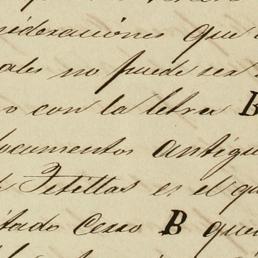 ideraciones que
ales no puede ser
o con la letra B
documentos antigu
Tetillas es el qu
itado Cerro B que